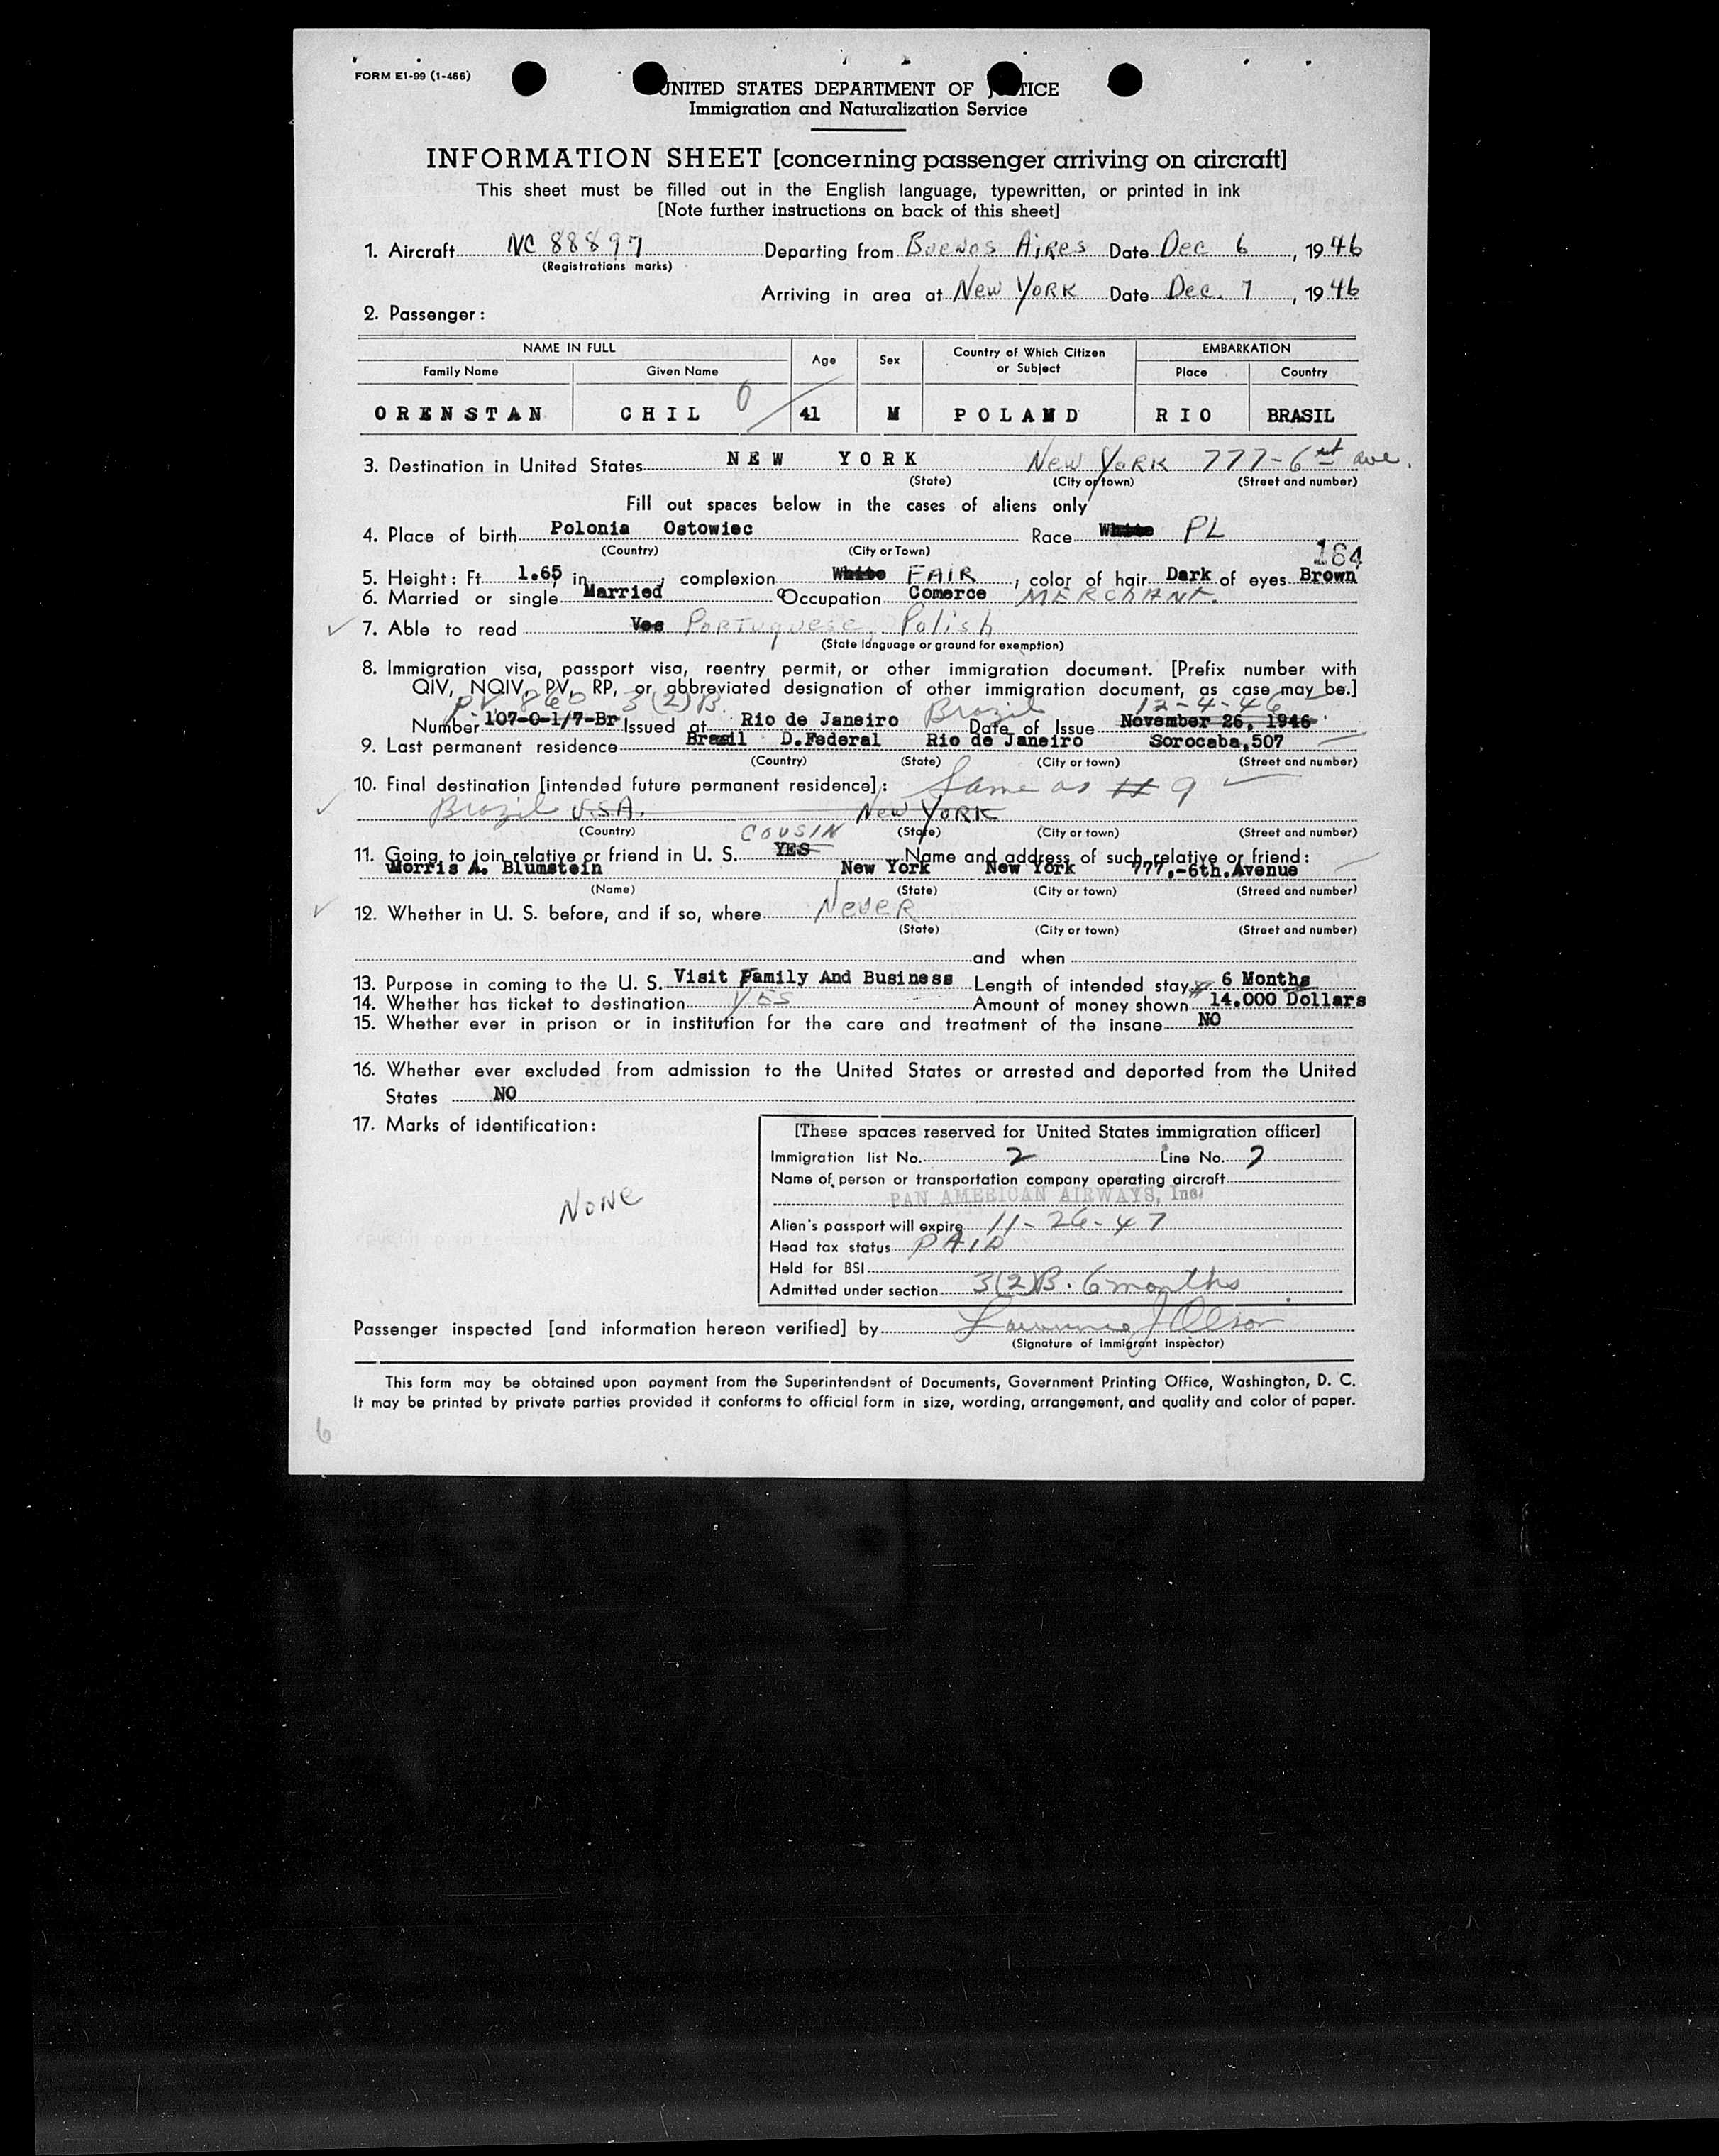 FORM E1-99 (1-466)
UNITED STATES DEPARTMENT OF J TICE
Immigration and Naturalization Service
INFORMATION SHEET [concerning passenger arriving on aircraft]
This sheet must be filled out in the English language, typewritten, or printed in ink
[Note further instructions on back of this sheet]
1. Aircraft NC 88897 Departing from Buenos Aires Date Dec 6, 1946
(Registrations marks)
Arriving in area at New York Date Dec. 7, 1946
2. Passenger:
NAME IN FULL Age Sex Country of Which Citizen or Subject EMBARKATION
Family Name Given Name Place Country
ORENSTAN CHIL 0 41 M POLAND RIO BRASIL
3. Destination in United States NEW YORK New York 777-6 ave.
(State) (City or town) (Street and number)
Fill out spaces below in the cases of aliens only
4. Place of birth Polonia Ostowiec Race White PL
(Country) (City or Town)
184
5. Height: Ft 1.65 in, complexion White FAIR; color of hair Dark of eyes Brown
6. Married or single Married Occupation Comerce MERCHANT.
7. Able to read Yes Portuguese, Polish
(State language or ground for exemption)
8. Immigration visa, passport visa, reentry permit, or other immigration document. [Prefix number with
QIV, NQIV, PV, RP, or abbreviated designation of other immigration document, as case may be.]
PV 860 3(2)B. Brazil 12-4-46
Number 107-0-1/7-Br Issued at Rio de Janeiro Date of Issue November 26, 1946
9. Last permanent residence Brasil D.Federal Rio de Janeiro Sorocaba,507
(Country) (State) (City or town) (Street and number)
10. Final destination [intended future permanent residece]: Same as # 9
Brazil U.S.A. New York
(Country) (State) (City or town) (Street and number)
COUSIN
11. Going to join relative or friend in U. S. YES Name and address of such relative or friend:
Morris A. Blumstein New York New York 777,-6th.Avenue
(Name) (State) (City or town) (Streed and number)
12. Whether in U. S. before, and if so, where Never
(State) (City or town) (Street and number)
and when
13. Purpose in coming to the U. S. Visit Family And Business Length of intended stay 6 Months
14. Whether has ticket to destination YES Amount of money shown 14.000 Dollars
15. Whether ever in prison or in institution for the care and treatment of the insane NO
16. Whether ever excluded from admission to the United States or arrested and deported from the United
States NO
17. Marks of identification:
None
[These spaces reserved for United States immigration officer]
Immigration list No. 2 Line No. 2
Name of person or transportation company operating aircraft
PAN AMERICAN AIRWAYS, Inc.
Alien's passport will expire 11-26-47
Head tax status PAID
Held for BSI
Admitted under section 3(2)B. 6 months
Passenger inspected [and information hereon verified] by Lawrence J Olson
(Signature of immigrant inspector)
This form may be obtained upon payment from the Superintendent of Documents, Government Printing Office, Washington, D. C.
It may be printed by private parties provided it conforms to official form in size, wording, arrangement, and quality and color of paper.
6